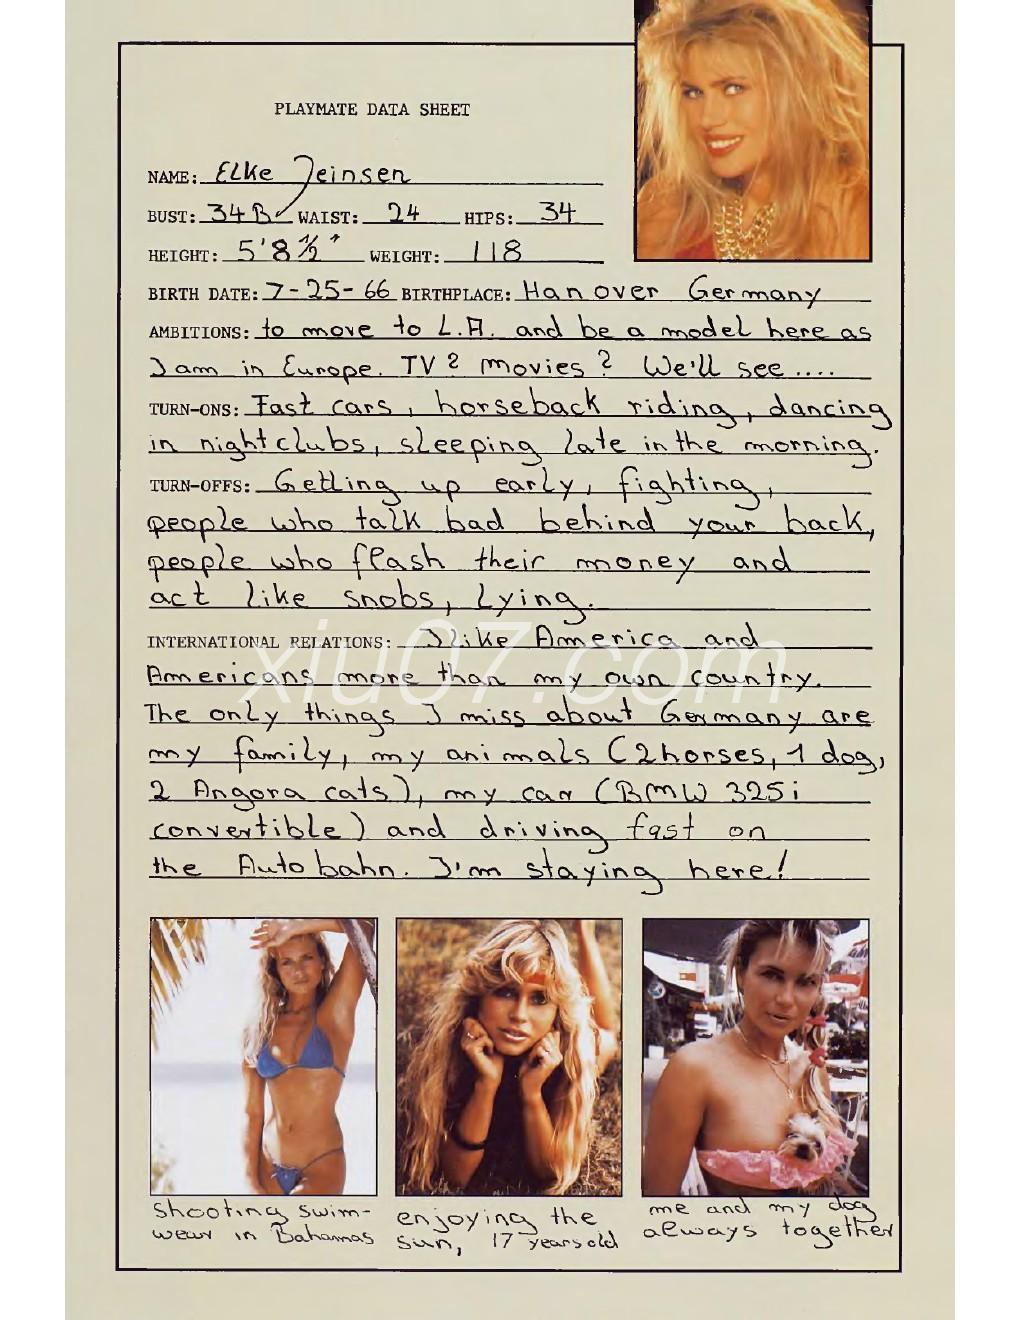 PLAYMATE DATA SHEET
NAME: Elke Jeinsen
BUST: 34B WAIST: 24 HIPS: 34
HEIGHT: 5'8½" WEIGHT: 118
BIRTH DATE: 7-25-66 BIRTHPLACE: Hanover Germany
AMBITIONS: to move to L.A. and be a model here as
I am in Europe. TV? Movies? We'll see ....
TURN-ONS: Fast cars, horseback riding, dancing
in nightclubs, sleeping late in the morning.
TURN-OFFS: Getting up early, fighting,
people who talk bad behind your back,
people who flash their money and
act like snobs, Lying.
INTERNATIONAL RELATIONS: I like America and
Americans more than my own country.
The only things I miss about Germany are
my family, my animals (2 horses, 1 dog,
2 Angora cats), my car (BMW 325i
convertible) and driving fast on
the Autobahn. I'm staying here!
xiu07.com
shooting swim-
wear in Bahamas
enjoying the
sun, 17 years old
me and my dog
always together